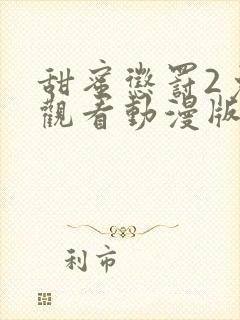 甜蜜懲罰2
觀看動漫版
利市